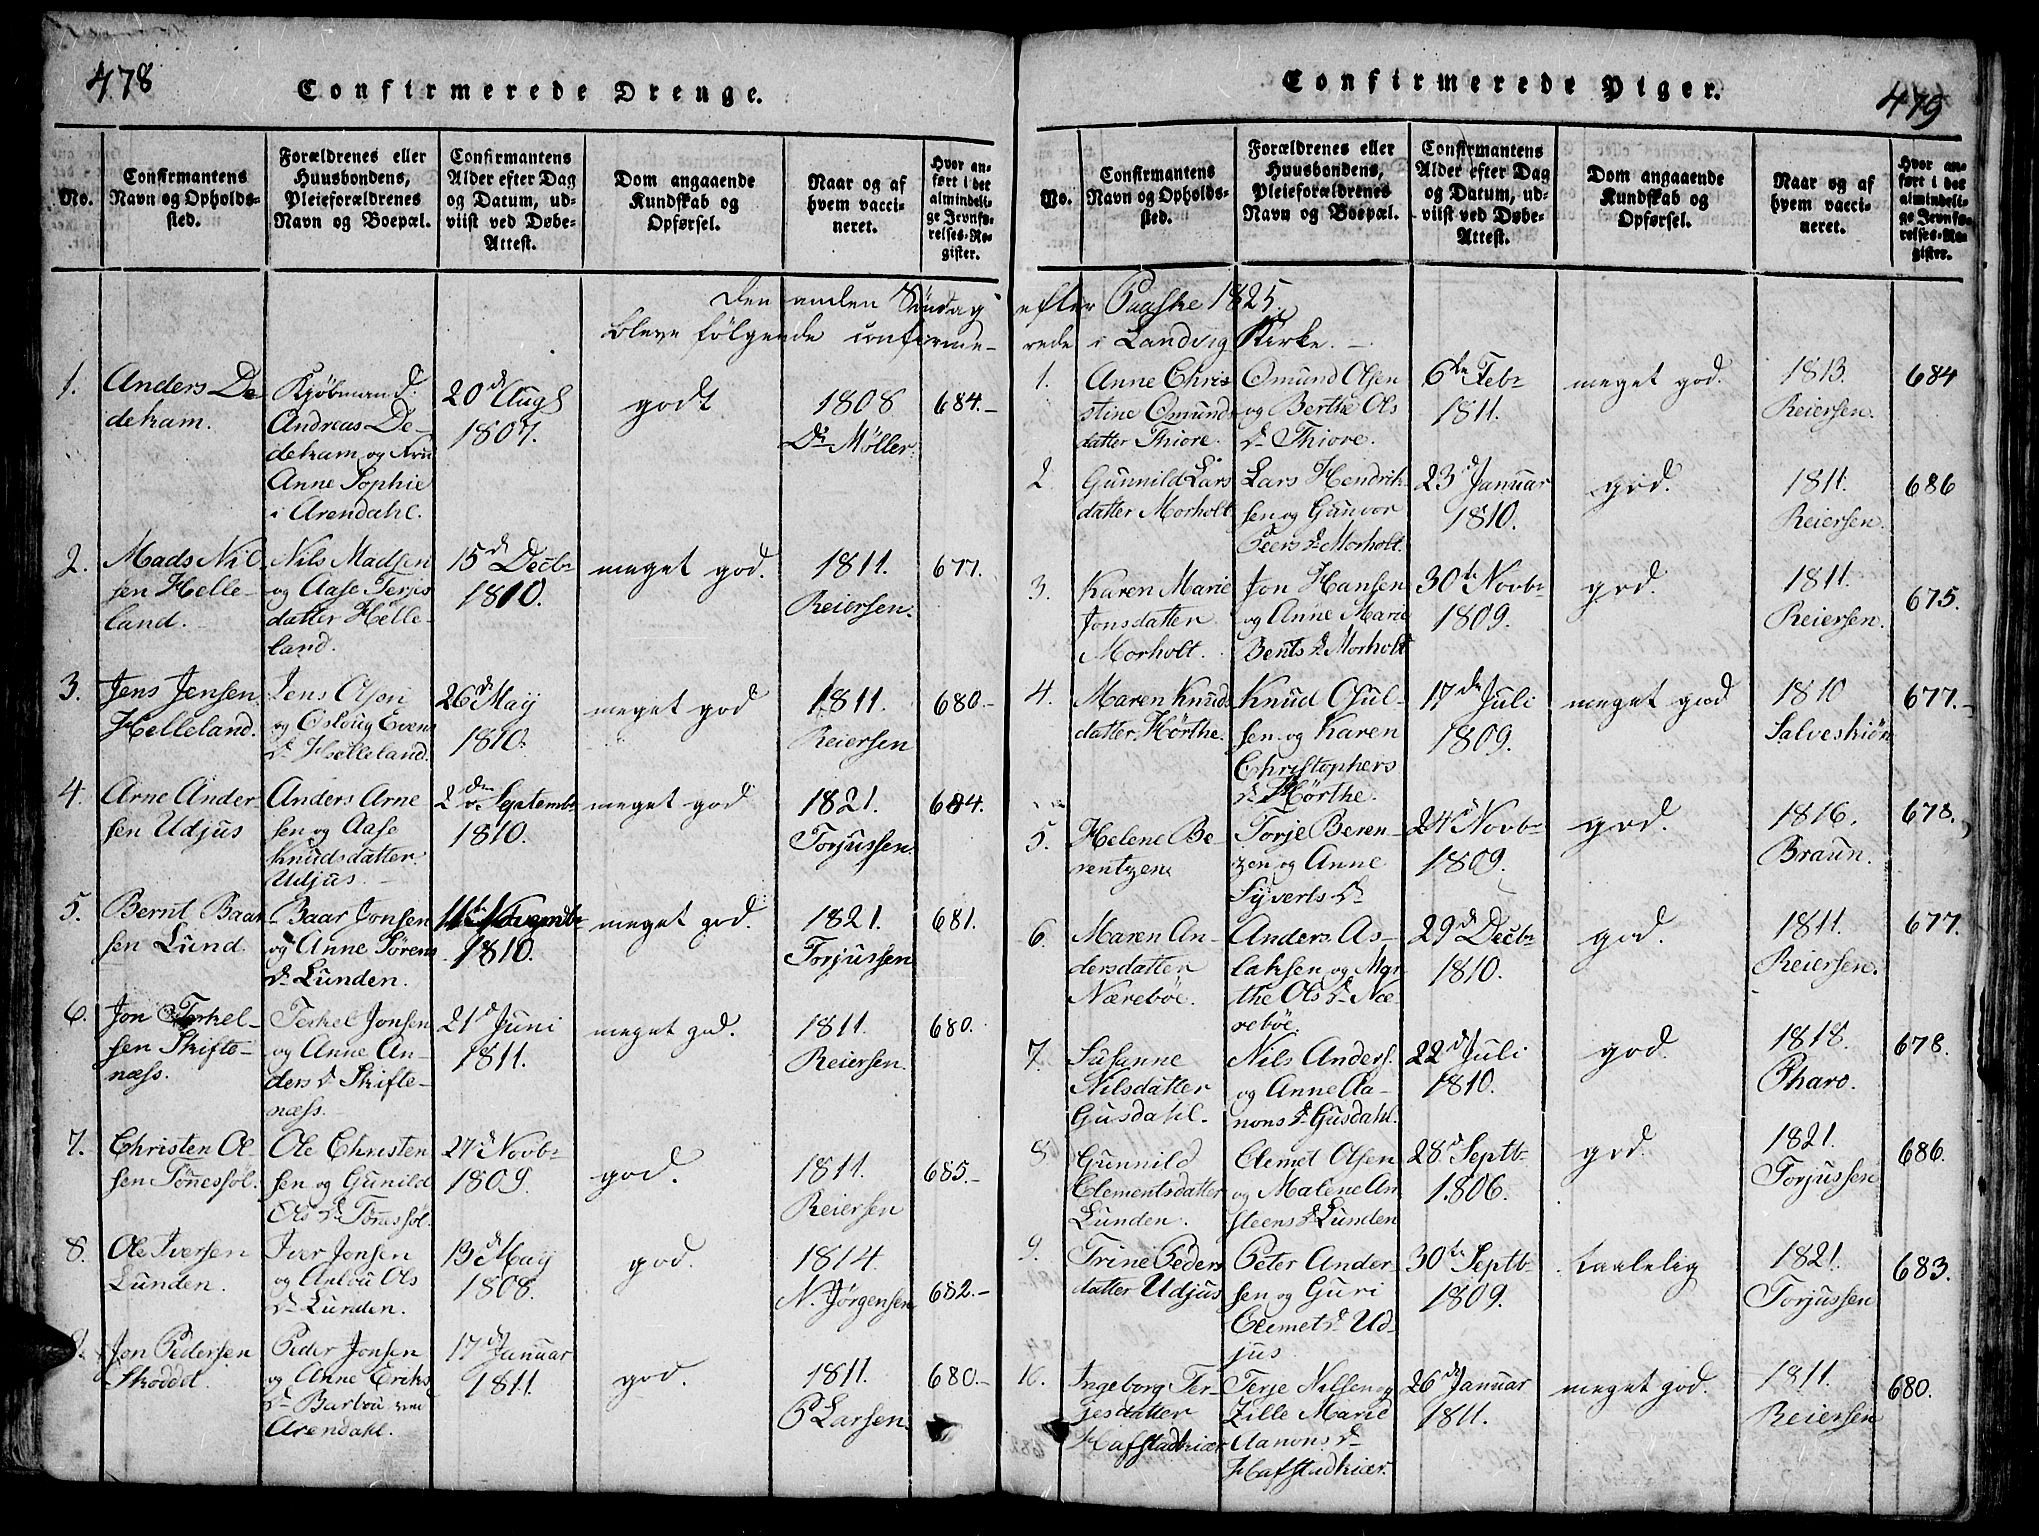 478
Confirmerede Drenge.
No.
Confirmantens
Navn og Opholds-
sted.
Forældrenes eller
Huusbondens,
Pleieforældrenes
Navn og Boepæl.
Confirmantens
Alder efter Dag
og Datum, ud-
viist ved Døbe-
Attest.
Dom angaaende
Kundskab og
Opførsel.
Naar og af
hvem vacci-
neret.
Hvor an-
ført i det
almindeli-
ge Jevnfø-
relses-Re-
gister.
Den anden Søndag
bleve følgende confirme-
1.
Anders De-
dekam.
Kjøbmand
Andreas De-
dekam og Fru
Anne Sophie
i Arendahl.
20d Aug
1807.
godt
1808
Dr Møller.
684.-
2.
Mads Nil
sen Helle-
land.
Nils Madsen
og Aase Terjes
datter Helle-
land.
15d Decbr
1810.
meget god.
1811.
Reiersen.
677.
3.
Jens Jensen
Helleland.
Jens Olsen
og Osloug Evens
dr Helleland.
26d May
1810.
meget god
1811.
Reiersen
680.-
4.
Arne Ander-
sen Udjus
Anders Arne
sen og Aase
Knudsdatter
Udjus.
2den Septembr
1810.
meget god
1821.
Torjussen.
684.
5.
Bernt Baar
sen Lund
Baar Jonsen
og Anne Sørens
dr Lunden.
11te Novembr
1810.
meget god.
1821.
Torjussen
681.
6.
Jon Terkel-
sen Skifte-
næss.
Terkel Jonsen
og Anne An-
ders dr Skifte-
næss.
21d Juni
1811.
meget god.
1811.
Reiersen.
680.
7.
Christen Ol-
sen Tønnessøl.
Ole Christen
sen og Gunild
Ols dr Tønnessøl.
27d Novbr
1809.
god.
1811.
Reiersen
685.-
8.
Ole Iversen
Lunden.
Iver Jonsen
og Anbou Ols
dr Lunden.
13d May
1808.
god.
1814.
N. Jørgensen
682.-
9.
Jon Pedersen
Skoddet.
Peder Jonsen
og Anne Eriks
dr Barbou ved
Arendahl.
17d Januar
1811.
god.
1811.
P Larsen.
680.-
479
Confirmerede Piger.
No.
Confirmantens
Navn og Opholds-
sted.
Forældrenes eller
Huusbondens,
Pleieforældrenes
Navn og Boepæl.
Confirmantens
Alder efter Dag
og Datum, ud-
viist ved Døbe-
Attest.
Dom angaaende
Kundskab og
Opførsel.
Naar og af
hvem vacci-
neret.
Hvor an-
ført i det
almindeli-
ge Jevnfø-
relses-Re-
gister.
efter Paaske 1825
rede i Landvig Kirke.
1.
Anne Chris
stine Omunds
datter Thiore.
Omund Olsen
og Berthe Ols
dr Thiore.
6te Febr
1811.
meget god.
1813.
Reiersen.
684
2.
Gunnild Lars
datter Morholt
Lars Hendrik
sen og Gunvor
Peers dr Morholt.
23d Januar
1810.
god.
1811.
Reiersen.
686
3.
Karen Marie
Jonsdatter
Morholt.
Jon Hansen
og Anne Marie
Bents dr Morholt
30te Novbr
1809.
god.
1811.
Reiersen.
675.
4.
Maren Knuds
datter Hørthe.
Knud Osul-
sen og Karen
Christophers
dr Hørthe.
17de Juli
1809.
meget god
1810
677.-
5.
Helene Be-
rentzen
Torje Beren-
zen og Anne
Syverts dr
24d Novbr
1809.
god.
1816.
Braun.
678.
6.
Maren An-
dersdatter
Nærebøe.
Anders As-
laksen og Mgr
the Ols dr Næ-
rebøe.
29d Decbr
1810.
god.
1811.
Reiersen.
677.
7.
Susanne
Nilsdatter
Gusdahl.
Nils Anders.
og Anne Aa-
nons dr Gusdahl.
22d Juli
1810.
god
1818.
Pharo.
678.
8.
Gunnild
Clementsdatter
Lunden.
Clemet Olsen
og Malene An
steens dr Lunden
28d Septbr
1806.
god.
1821.
Torjussen
686.
9.
Trine Peders
datter Udjus
Peter Ander-
sen og Guri
Clemets dr Ud-
jus
30te Septbr
1809.
taalelig
1821.
Torjussen
683.
10.
Ingeborg Ter-
jesdatter
Hafstadkiær
Terje Nilsen og
Zille Marie
Aanons dr
Hafstadkiær.
26d Januar
1811.
meget god.
1811.
Reiersen
680.